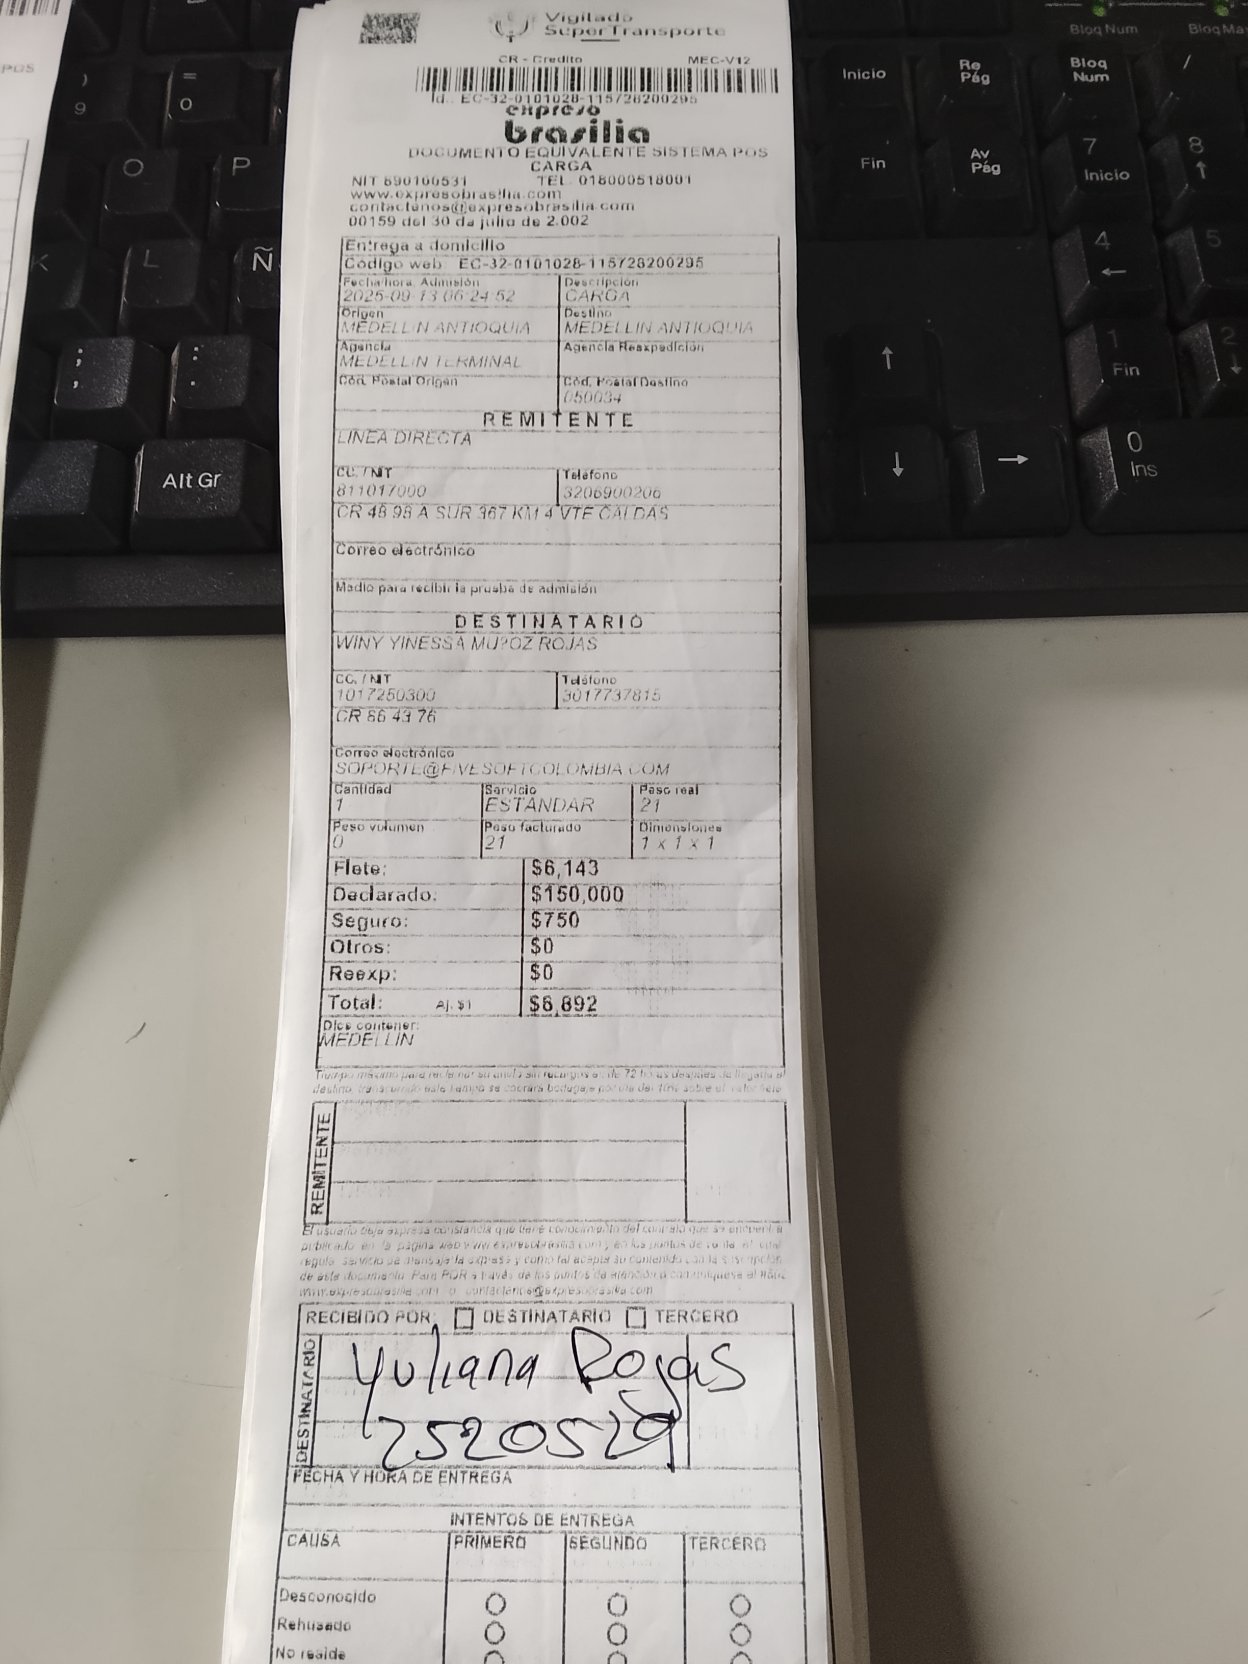 Vigilado
SuperTransporte
CR - Credito MEC-V12
Id.. EC-32-0101028-115728200295
expreso
brasilia
DOCUMENTO EQUIVALENTE SISTEMA POS
CARGA
NIT 890100531 TEL. 018000518001
www.expresobrasilia.com
contactenos@expresobrasilia.com
00159 del 30 de julio de 2.002
Entrega a domicilio
Código web: EC-32-0101028-115728200295
Fecha/hora, Admisión Descripción
2025-09-13 06:24:52 CARGA
Origen Destino
MEDELLIN ANTIOQUIA MEDELLIN ANTIOQUIA
Agencia Agencia Reexpedición
MEDELLIN TERMINAL
Cód. Postal Origen Cód. Postal Destino
050034
REMITENTE
LINEA DIRECTA
CC. / NIT Teléfono
811017000 3206900206
CR 48 98 A SUR 367 KM 4 VTE CALDAS
Correo electrónico
Medio para recibir la prueba de admisión
DESTINATARIO
WINY YINESSA MU?OZ ROJAS
CC. / NIT Teléfono
1017250300 3017737815
CR 86 43 76
Correo electrónico
SOPORTE@FIVESOFTCOLOMBIA.COM
Cantidad Servicio Peso real
1 ESTANDAR 21
Peso volumen Peso facturado Dimensiones
0 21 1 x 1 x 1
Flete: $6,143
Declarado: $150,000
Seguro: $750
Otros: $0
Reexp: $0
Total: Aj. $1 $6,892
Dice contener:
MEDELLIN
REMITENTE
El usuario deja expresa constancia que tiene conocimiento del contrato que se encuentra
publicado en la página web www.expresobrasilia.com y en los puntos de venta, el cual
regula servicio de mensajería expresa y como tal acepta su contenido con la suscripción
de este documento. Para PQR a través de los puntos de atención o comuníquese al
www.expresobrasilia.com contactenos@expresobrasilia.com
RECIBIDO POR: DESTINATARIO TERCERO
DESTINATARIO
Yuliana Rojas
2520529
FECHA Y HORA DE ENTREGA
INTENTOS DE ENTREGA
CAUSA PRIMERO SEGUNDO TERCERO
Desconocido
Rehusado
No reside
POS
Inicio
Re Pág
Bloq Num
Fin
Av Pág
7 Inicio
8
4
5
1 Fin
2
0 Ins
/
Bloq Num
Bloq Ma
)
9
=
0
O
P
K
L
Ñ
;
:
.
Alt Gr